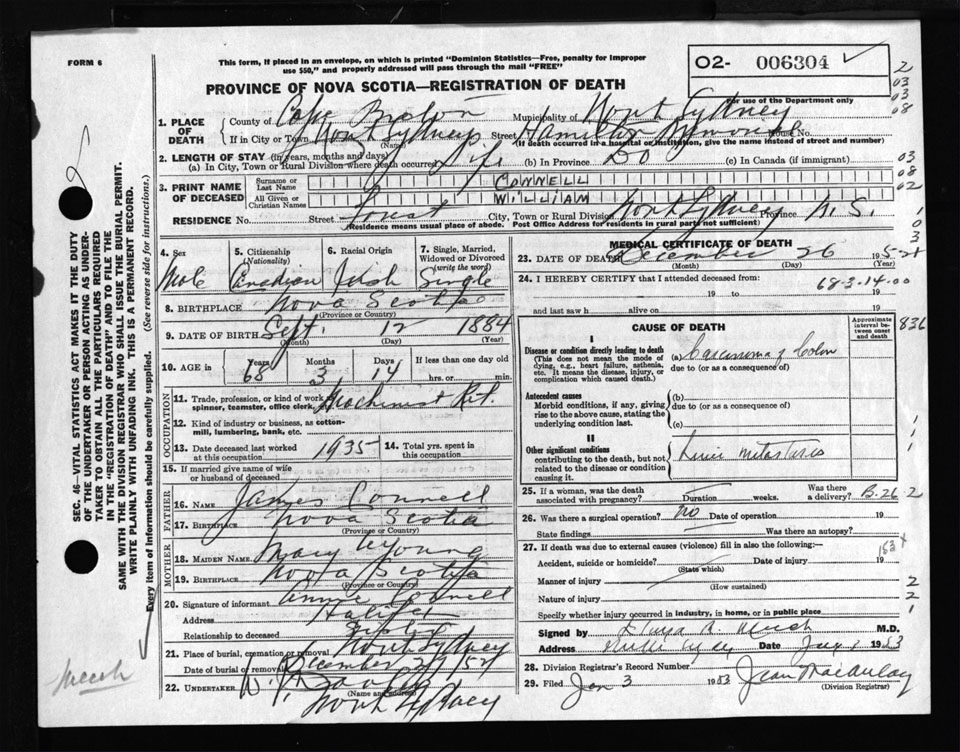 FORM 6
This form, if placed in an envelope, on which is printed "Dominion Statistics—Free, penalty for improper
use $50," and properly addressed will pass through the mail "FREE"
O2- 006304
For use of the Department only
PROVINCE OF NOVA SCOTIA—REGISTRATION OF DEATH
1. PLACE OF DEATH
County of Cape Breton Municipality of North Sydney
If in City or Town North Sydney Street Hamilton House No.
(Name) (If death occurred in a hospital or institution, give the name instead of street and number)
2. LENGTH OF STAY (in years, months and days)
(a) In City, Town or Rural Division where death occurred Life (b) In Province Do (c) In Canada (if immigrant)
3. PRINT NAME OF DECEASED
Surname or Last Name CONNELL
All Given or Christian Names WILLIAM
RESIDENCE No. Street Forest City, Town or Rural Division North Sydney Province N. S.
(Residence means usual place of abode. Post Office Address for residents in rural parts not sufficient)
4. Sex 5. Citizenship (Nationality) 6. Racial Origin 7. Single, Married, Widowed or Divorced (write the word)
Male Canadian Irish Single
8. BIRTHPLACE Nova Scotia
(Province or Country)
9. DATE OF BIRTH Sept. 12 1884
(Month) (Day) (Year)
10. AGE in Years Months Days If less than one day old
68 3 14 hrs. or min.
OCCUPATION
11. Trade, profession, or kind of work as spinner, teamster, office clerk, Machinist Ret.
12. Kind of industry or business, as cotton-mill, lumbering, bank, etc.
13. Date deceased last worked at this occupation 1935 14. Total yrs. spent in this occupation
15. If married give name of wife or husband of deceased
FATHER
16. Name James Connell
17. Birthplace Nova Scotia
(Province or Country)
MOTHER
18. Maiden Name Mary Young
19. Birthplace Nova Scotia
(Province or Country)
20. Signature of informant Annie Connell
Address Halifax
Relationship to deceased Sister
21. Place of burial, cremation or removal North Sydney
Date of burial or removal December 29/52
22. UNDERTAKER W.
(Name and address)
North Sydney
MEDICAL CERTIFICATE OF DEATH
23. DATE OF DEATH December 26 1952
(Month) (Day) (Year)
24. I HEREBY CERTIFY that I attended deceased from:
68-3-14-00
19 to 19
and last saw h alive on 19
CAUSE OF DEATH
Approximate interval between onset and death
I
Disease or condition directly leading to death
(This does not mean the mode of dying, e.g., heart failure, asthenia, etc. It means the disease, injury, or complication which caused death.)
(a) Carcinoma of Colon
due to (or as a consequence of)
Antecedent causes
Morbid conditions, if any, giving rise to the above cause, stating the underlying condition last.
(b)
due to (or as a consequence of)
(c)
II
Other significant conditions
contributing to the death, but not related to the disease or condition causing it.
Liver metastasis
25. If a woman, was the death associated with pregnancy? Duration weeks. Was there a delivery? B-26-2
26. Was there a surgical operation? no Date of operation 19
State findings Was there an autopsy?
27. If death was due to external causes (violence) fill in also the following:—
153
Accident, suicide or homicide? Date of injury 19
(State which)
Manner of injury
(How sustained)
Nature of injury
Specify whether injury occurred in industry, in home, or in public place
Signed by M.D.
Address Date 1953
28. Division Registrar's Record Number
29. Filed Jan 3 1953 Jean MacAulay
(Division Registrar)
SEC. 46—VITAL STATISTICS ACT MAKES IT THE DUTY
OF THE UNDERTAKER OR PERSON ACTING AS UNDERTAKER TO OBTAIN ALL THE PARTICULARS REQUIRED
IN THE "REGISTRATION OF DEATH" AND TO FILE THE
SAME WITH THE DIVISION REGISTRAR WHO SHALL ISSUE THE BURIAL PERMIT.
WRITE PLAINLY WITH UNFADING INK. THIS IS A PERMANENT RECORD.
Every item of information should be carefully supplied. (See reverse side for instructions.)
836